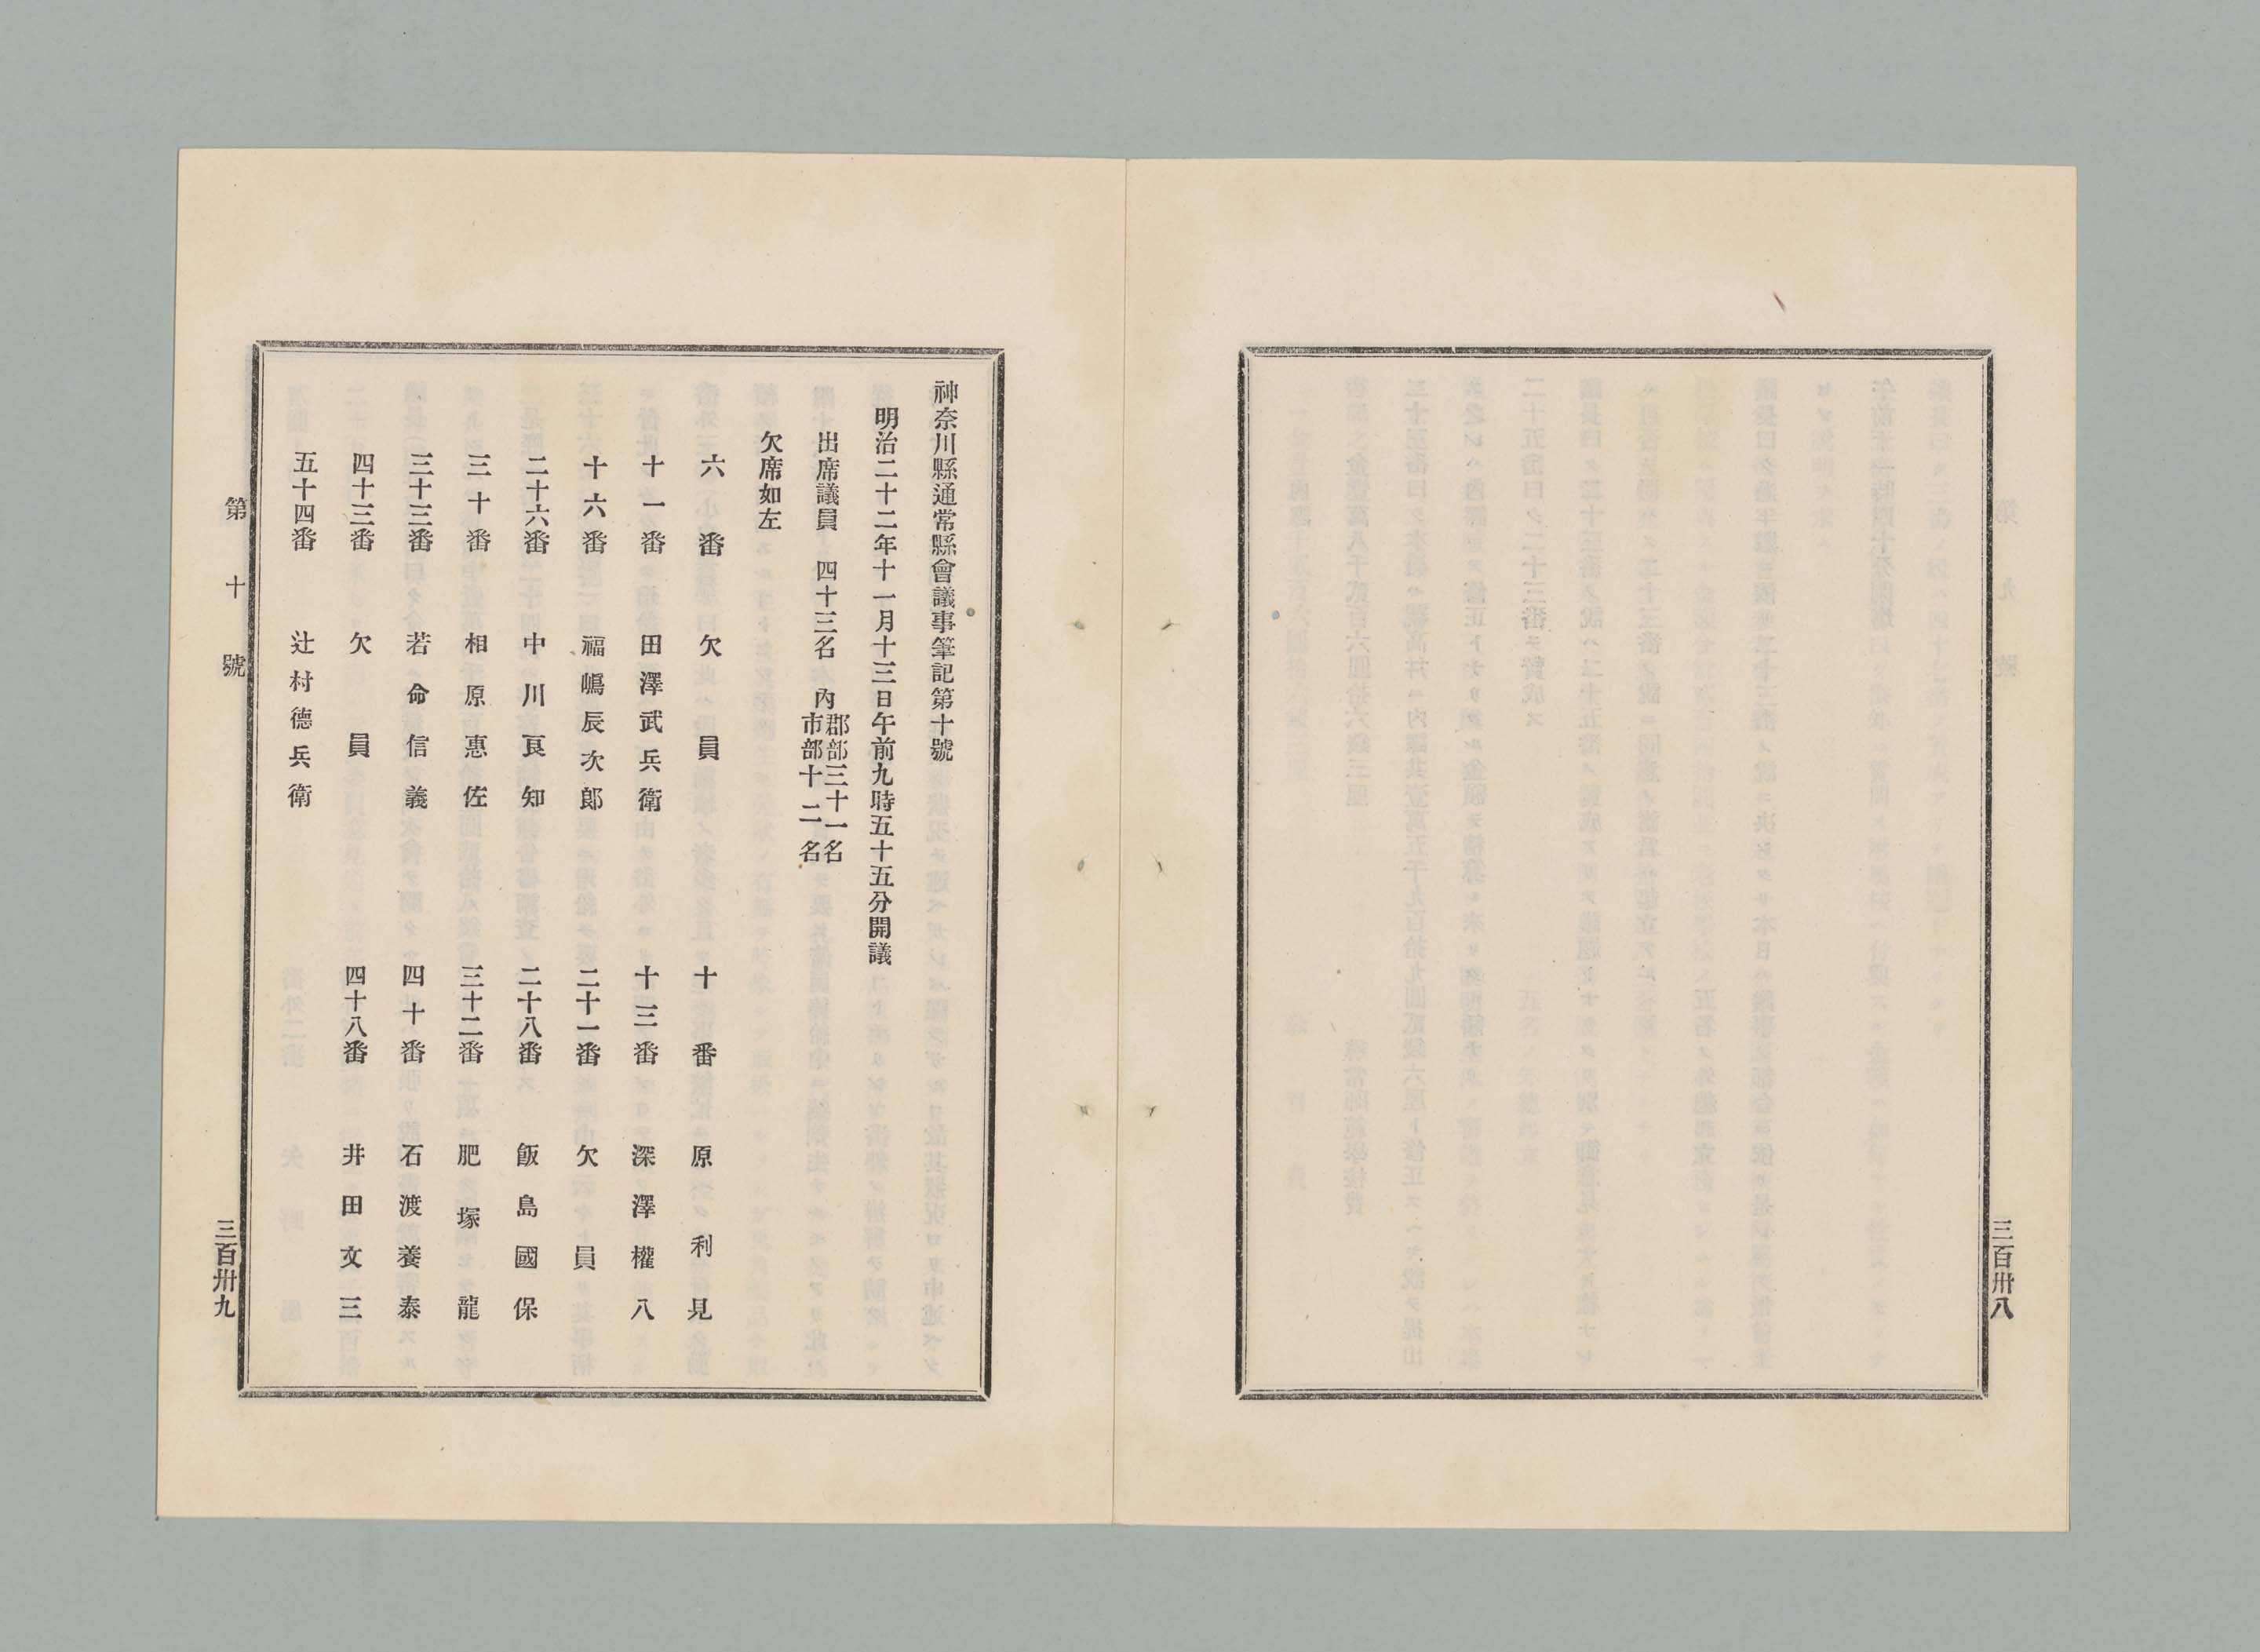 三百卅八
神奈川縣通常縣會議事筆記第十號
明治二十二年十一月十三日午前九時五十五分開議
出席議員 四十三名 內 郡部三十一名 市部十二名
欠席如左
六番 欠員 十番 原利見
十一番 田澤武兵衛 十三番 深澤權八
十六番 福嶋辰次郎 二十一番 欠員
二十六番 中川良知 二十八番 飯島國保
三十番 相原惠佐 三十二番 肥塚龍
三十三番 若命信義 四十番 石渡養泰
四十三番 欠員 四十八番 井田文三
五十四番 辻村德兵衛
第十號
三百卅九